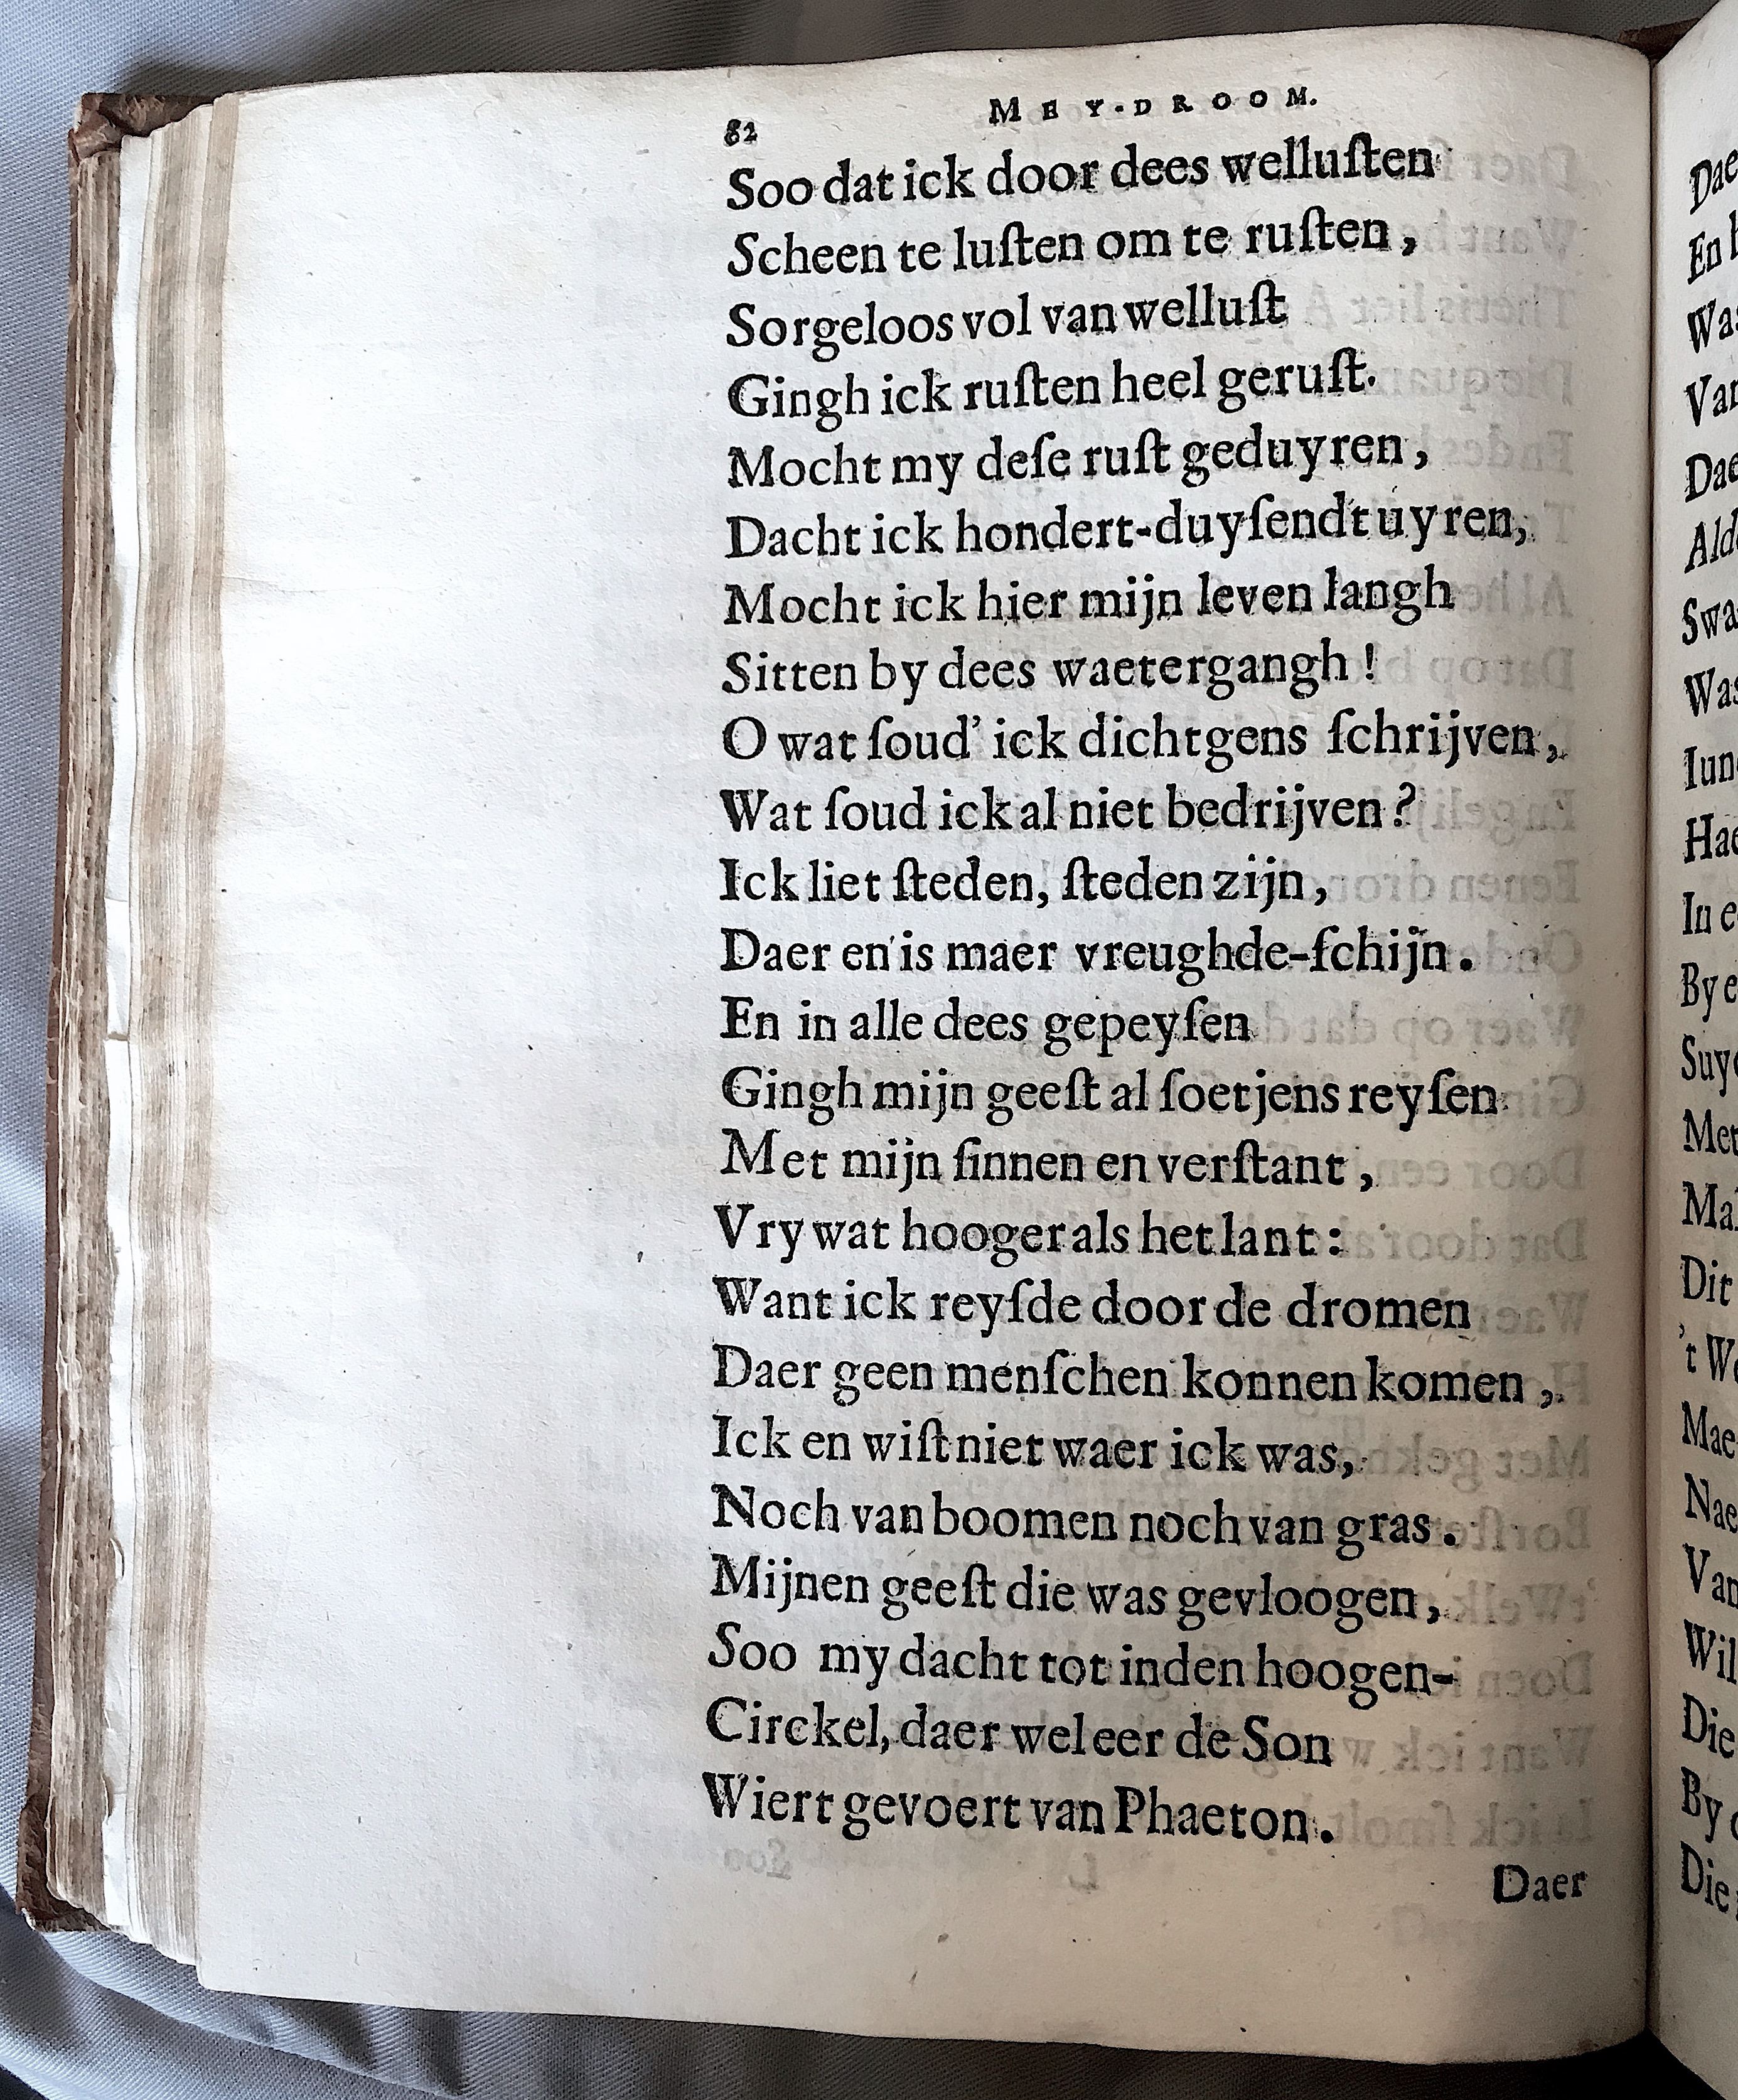 82 MEY-DROOM.
Soo dat ick door dees welluſten
Scheen te luſten om te ruſten,
Sorgeloos vol van welluſt
Gingh ick ruſten heel geruſt.
Mocht my deſe ruſt geduyren,
Dacht ick hondert-duyſendt uyren,
Mocht ick hier mijn leven langh
Sitten by dees waetergangh!
O wat ſoud' ick dichtgens ſchrijven,
Wat ſoud ick al niet bedrijven?
Ick liet ſteden, ſteden zijn,
Daer en is maer vreughde-ſchijn.
En in alle dees gepeyſen
Gingh mijn geeſt al ſoetjens reyſen
Met mijn ſinnen en verſtant,
Vry wat hooger als het lant:
Want ick reyſde door de dromen
Daer geen menſchen konnen komen,
Ick en wiſt niet waer ick was,
Noch van boomen noch van gras.
Mijnen geeſt die was gevloogen,
Soo my dacht tot in den hoogen-
Circkel, daer wel eer de Son
Wiert gevoert van Phaeton.
Daer
Dae
En h
Was
Van
Dae
Alde
Swa
Was
Iun
Hae
In e
By e
Suy
Met
Mal
Dit
't We
Mae
Nae
Van
Wil
Die
By
Die